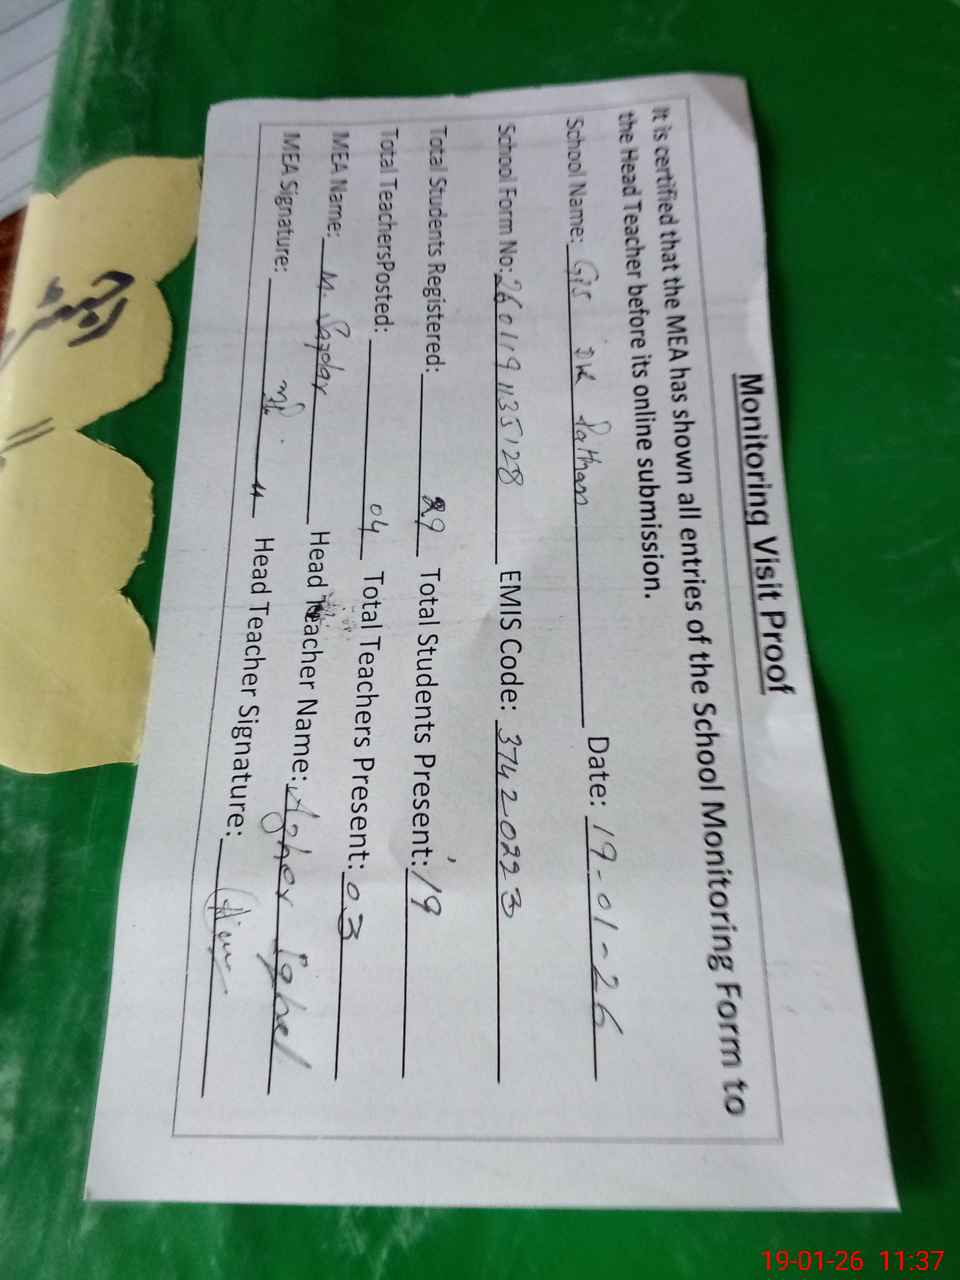 Monitoring Visit Proof
It is certified that the MEA has shown all entries of the School Monitoring Form to
the Head Teacher before its online submission.
School Name: GPS DK Pathan Date: 19-01-26
School Form No: 2601191135128 EMIS Code: 37420223
Total Students Registered: 29 Total Students Present: 19
Total TeachersPosted: 04 Total Teachers Present: 03
MEA Name: M. Safdar Head Teacher Name: Azher Iqbal
MEA Signature: Head Teacher Signature:
19-01-26 11:37